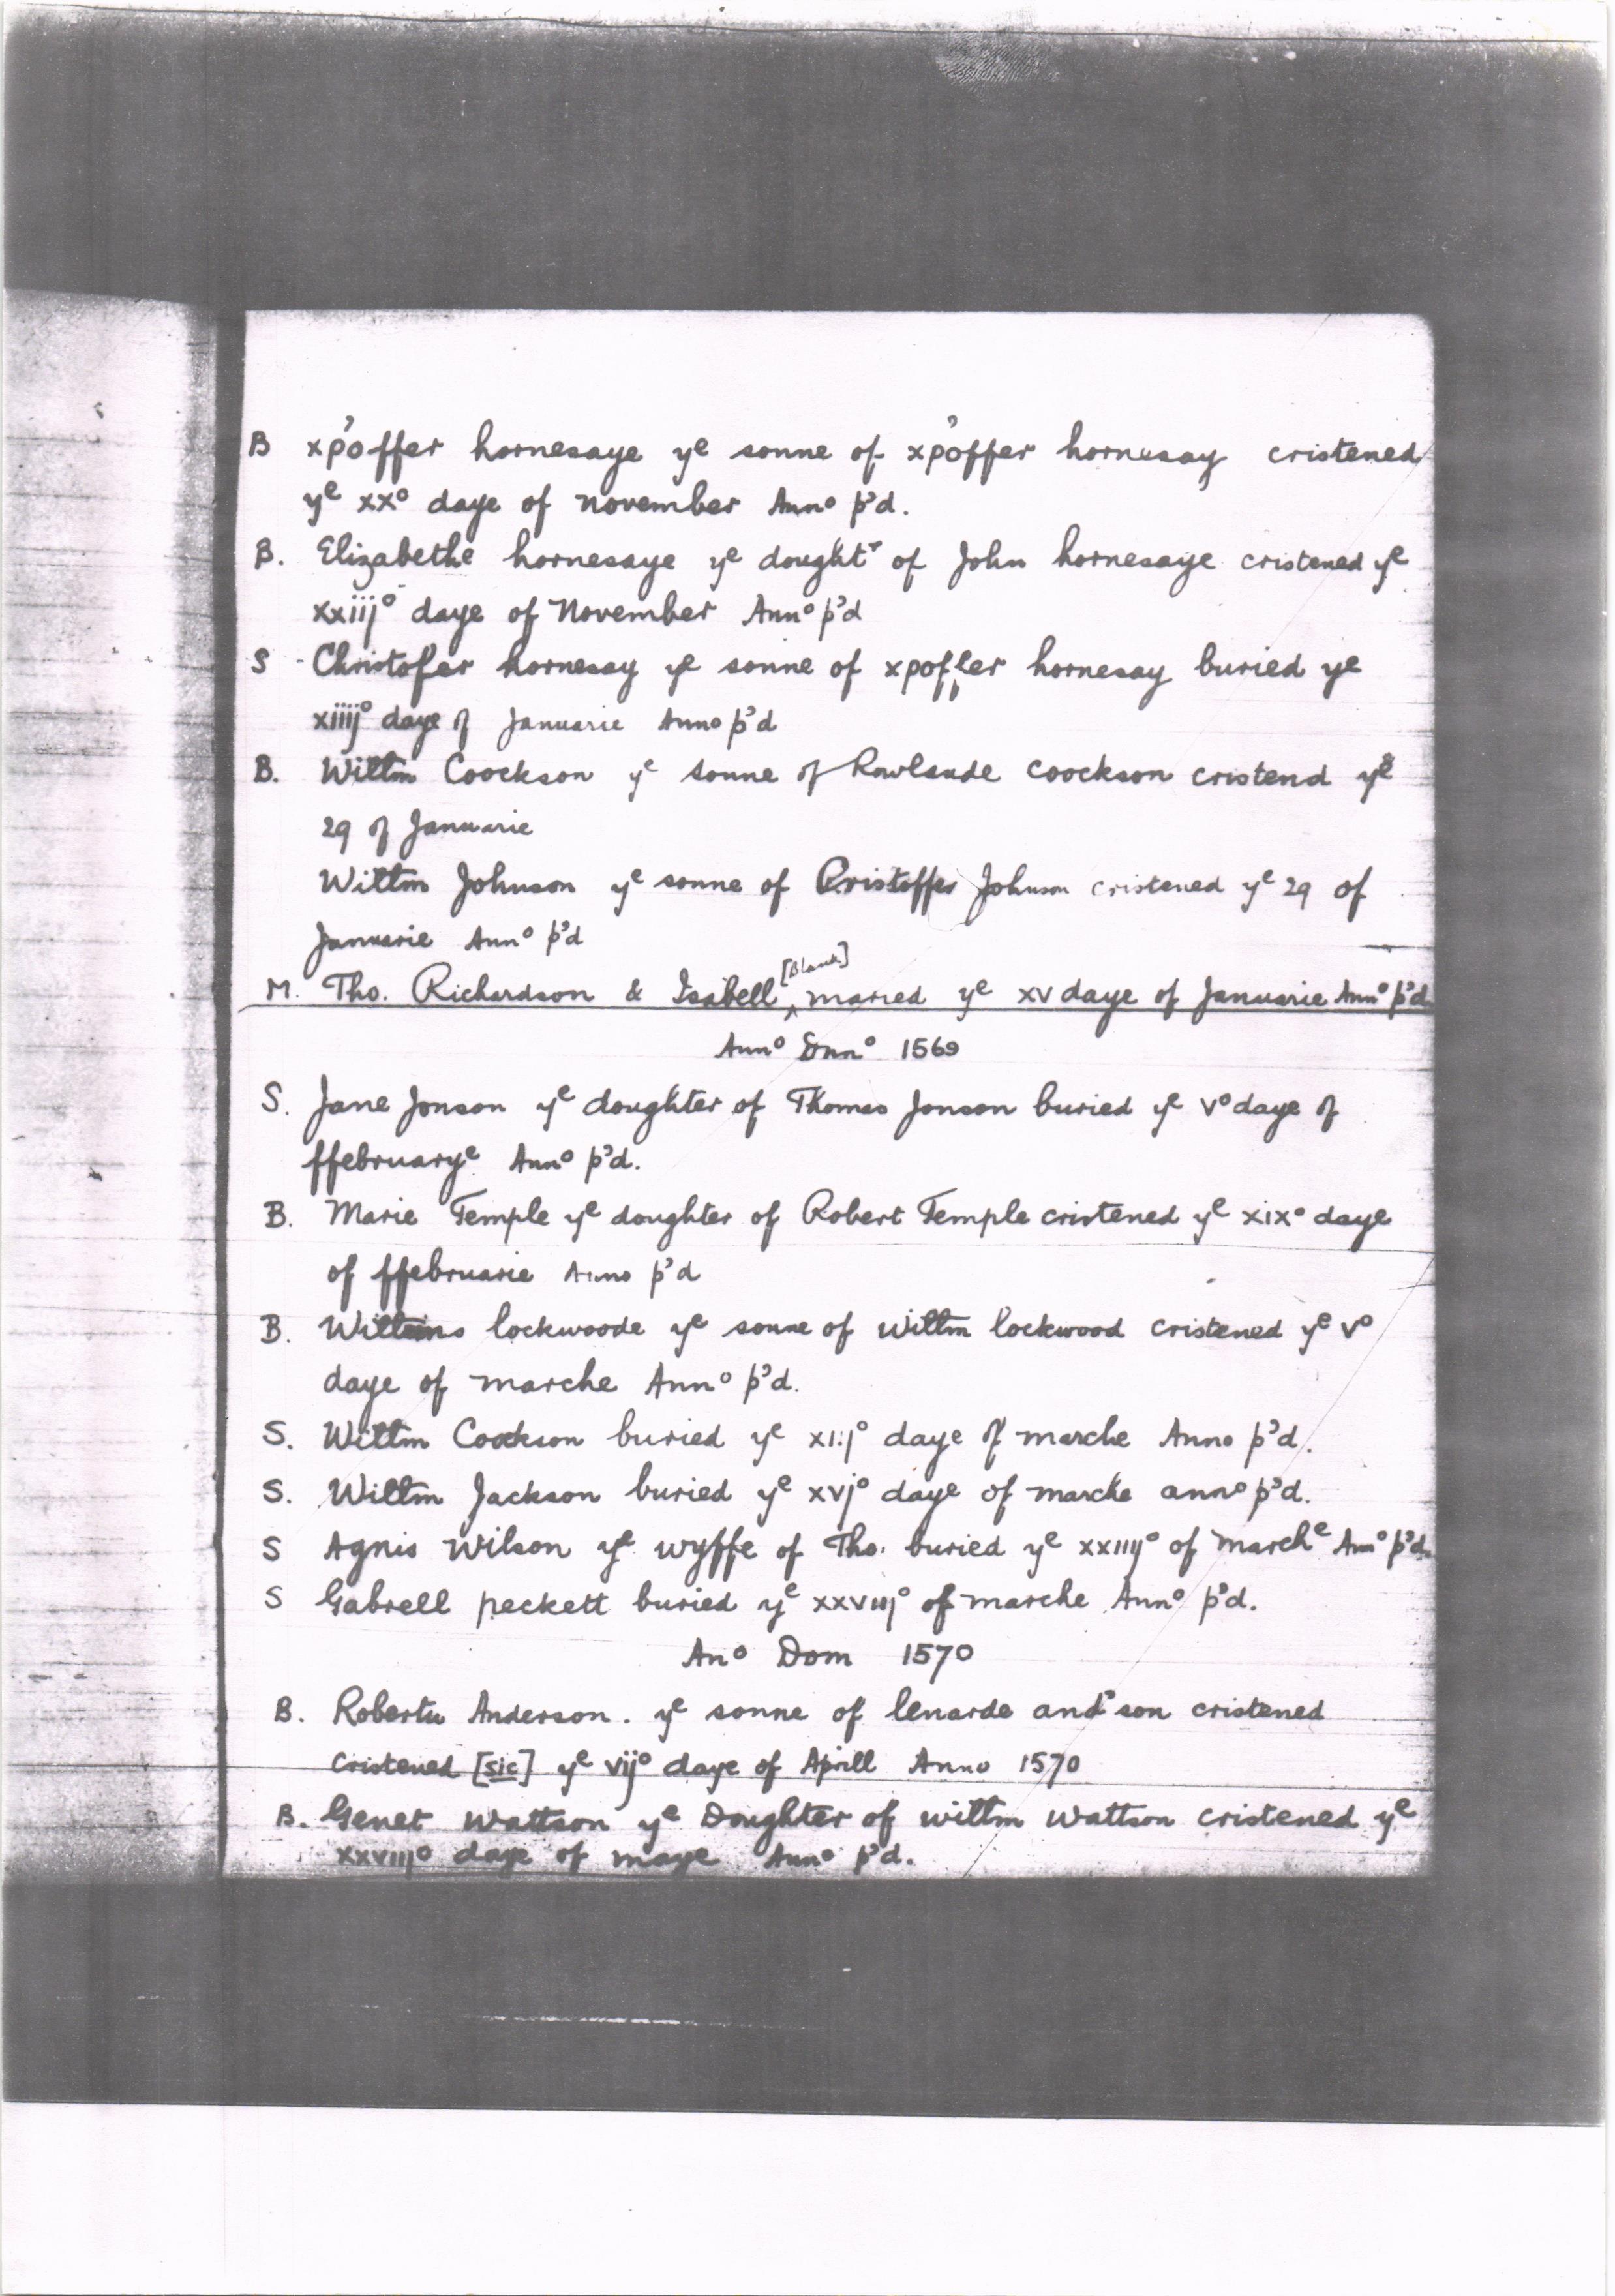 B xp'offer hornesaye yᵉ sonne of xp'offer hornesay cristened
yᵉ xxᵒ daye of november Annᵒ p'd.
B. Elizabethe hornesaye yᵉ doughtʳ of John hornesaye cristened yᵉ
xxiijᵒ daye of November Annᵒ p'd
S Christofer hornesay yᵉ sonne of xpoffer hornesay buried ye
xiiijᵒ daye of Januarie Anno p'd
B. Willm Coockson yᵉ sonne of Rowlande coockson cristend yᵉ
29 of Januarie
Willm Johnson yᵉ sonne of Cristoffer Johnson cristened yᵉ 29 of
Januarie Annᵒ p'd
[Blank]
M. Tho. Richardson & Isabell ‸ maried yᵉ xv daye of Januarie Annᵒ p'd.
Annᵒ Dnnᵒ 1569
S. Jane Jonson yᵉ doughter of Thomas Jonson buried yᵉ vᵒ daye of
ffebruaryᵉ Annᵒ p'd.
B. Marie Temple yᵉ doughter of Robert Temple cristened yᵉ xixᵒ daye
of ffebruarie Anno p'd
B. lockwoode yᵉ sonne of willm lockwood cristened yᵉ vᵒ
daye of marche Annᵒ p'd.
S. Willm Coockson buried yᵉ xiijᵒ daye of marche Anno p'd.
S. Willm Jackson buried yᵉ xvjᵒ daye of marche annᵒ p'd.
S Agnis Wilson yᵉ wyffe of Tho. buried yᵉ xxiiijᵒ of marchᵉ Annᵒ p'd.
S Gabrell peckett buried yᵉ xxviijᵒ of marche Annᵒ p'd.
Anᵒ Dom 1570
B. Robertu Anderson. yᵉ sonne of lenarde andʳson cristened
cristened [sic] yᵉ vijᵒ daye of Aprill Anno 1570
B. Genet Wattson yᵉ Doughter of willm Wattson cristened yᵉ
xxviijᵒ daye of maye Annᵒ p'd.